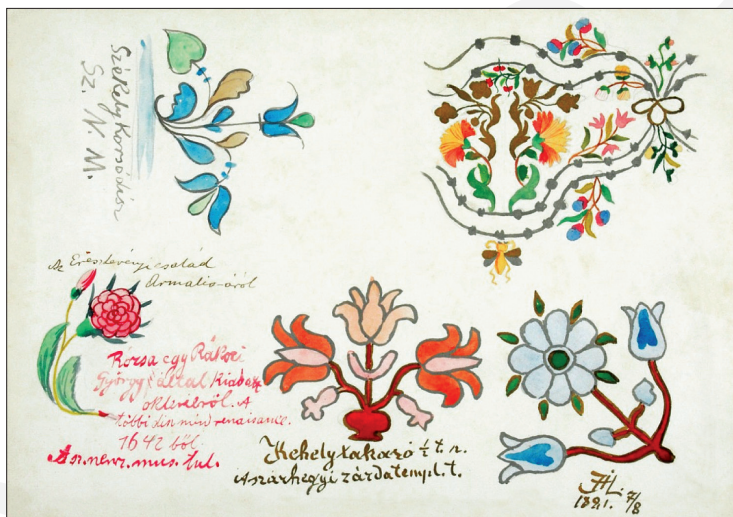 Székely Korsódísz
Sz. N. M.
Az Eresztevényi család
Armalis-áról
Rozsa egy Rákoci
György által kiadott
oklevélről. A
többi dísz mind renaisance.
1642 ből
A sz. nemz. mus. tul.
Kehelytakaró ½ t. n.
A szárhegyi zárdatempl. t.
1891. 7/8